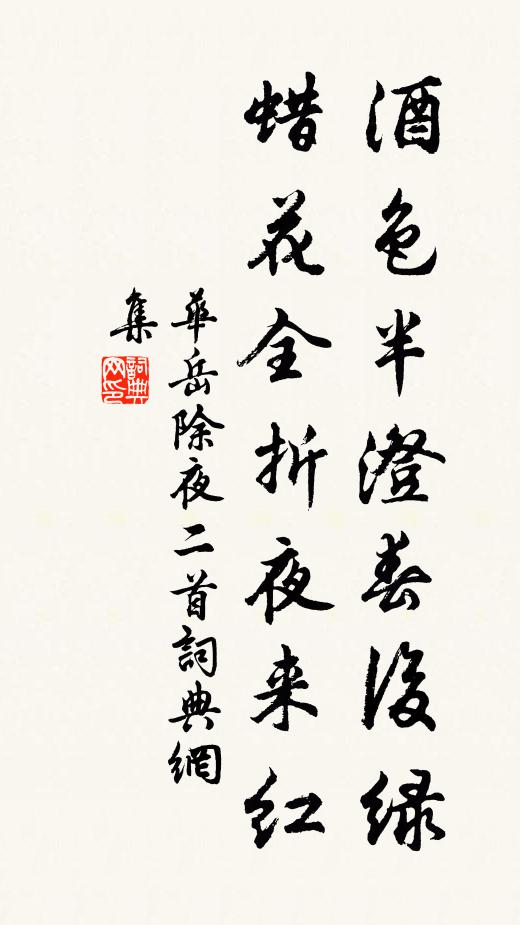 酒色半澄春後绿
蜡花全折夜来红
華岳除夜二首詞典網
集
詞典
网印